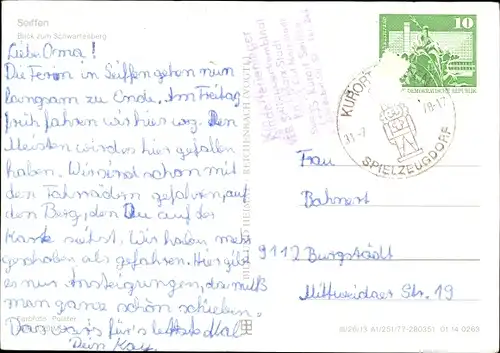 Seiffen
Blick zum Schwartenberg
Liebe Oma!
Die Ferien in Seiffen gehen nun
langsam zu Ende. Am Freitag
früh fahren wir hier weg. Den
Meisten wird es hier gefallen
haben. Wir sind schon mit
den Fahrrädern gefahren, auf
den Berg, den Du auf der
Karte siehst. Wir haben mehr
geschoben als gefahren. Hier gibt
es nur Ansteigungen, da muß
man ganz schön schieben.
Das war's für's letzte Mal
Dein Kay.
10
DEUTSCHE DEMOKRATISCHE REPUBLIK
KURORT
SPIELZEUGDORF
Frau
Bahnert
9112 Burgstädt
Mittweidaer Str. 19
BILD UND HEIMAT REICHENBACH (VOGTL)
01 14 0263